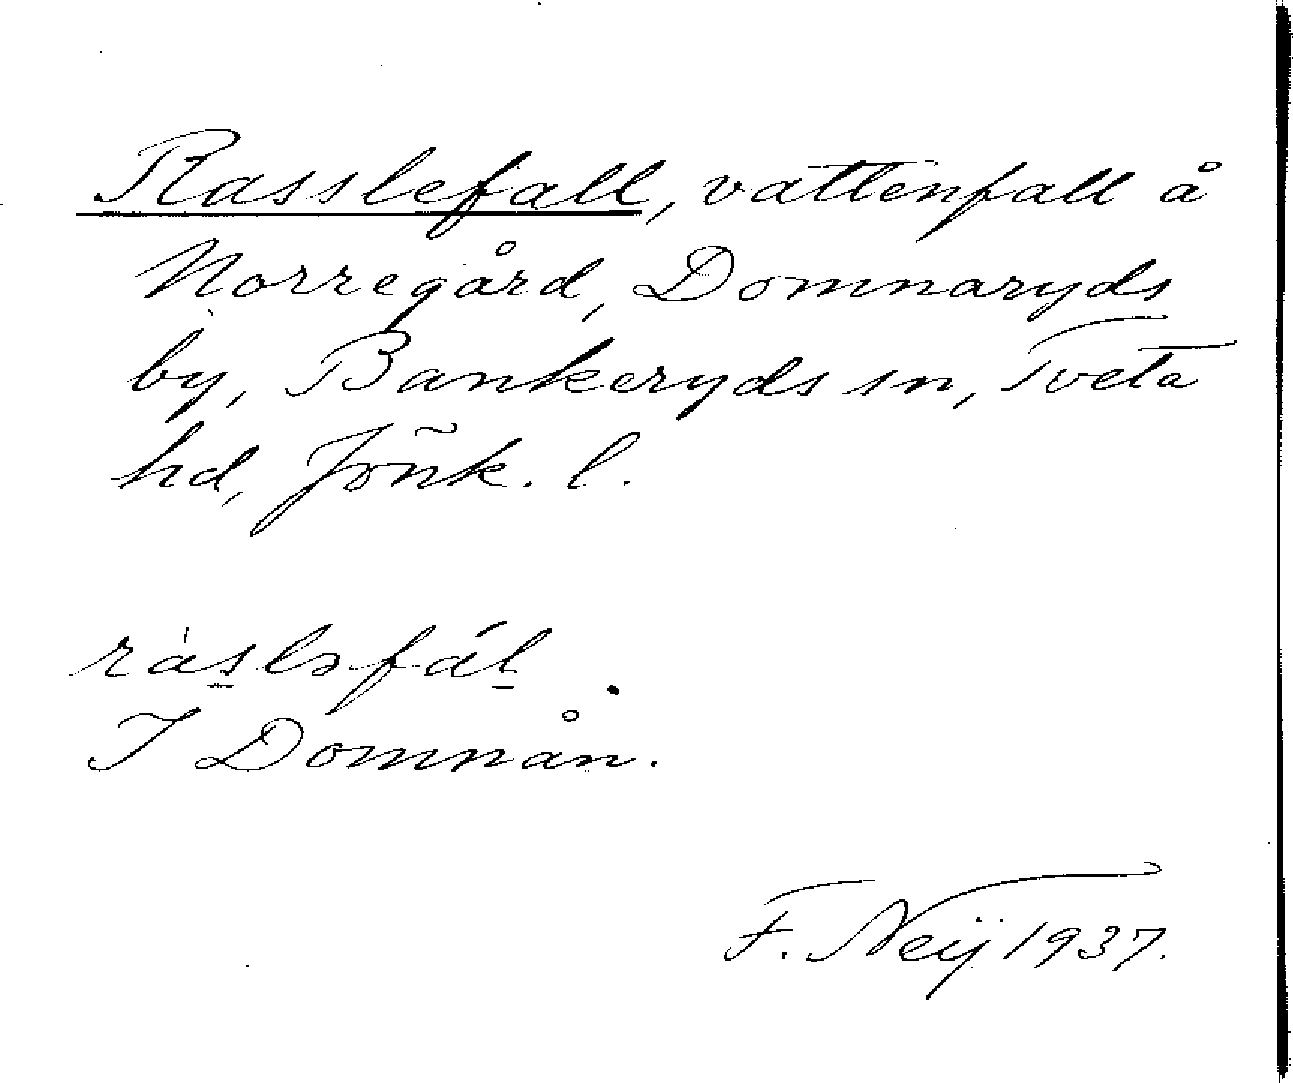 Rasslefall, vattenfall å
Norregård, Domnaryds
by, Bankeryds sn, Tveta
hd, Jönk. l.
ràsləfál.
I Domnån.
F. Neij 1937.